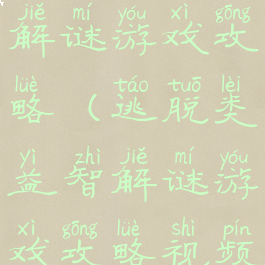 jiě mí yóu xì gōng
解谜游戏攻
lüè táo tuō lèi
略(逃脱类
yì zhì jiě mí yóu
益智解谜游
xì gōng lüè shì pín
戏攻略视频